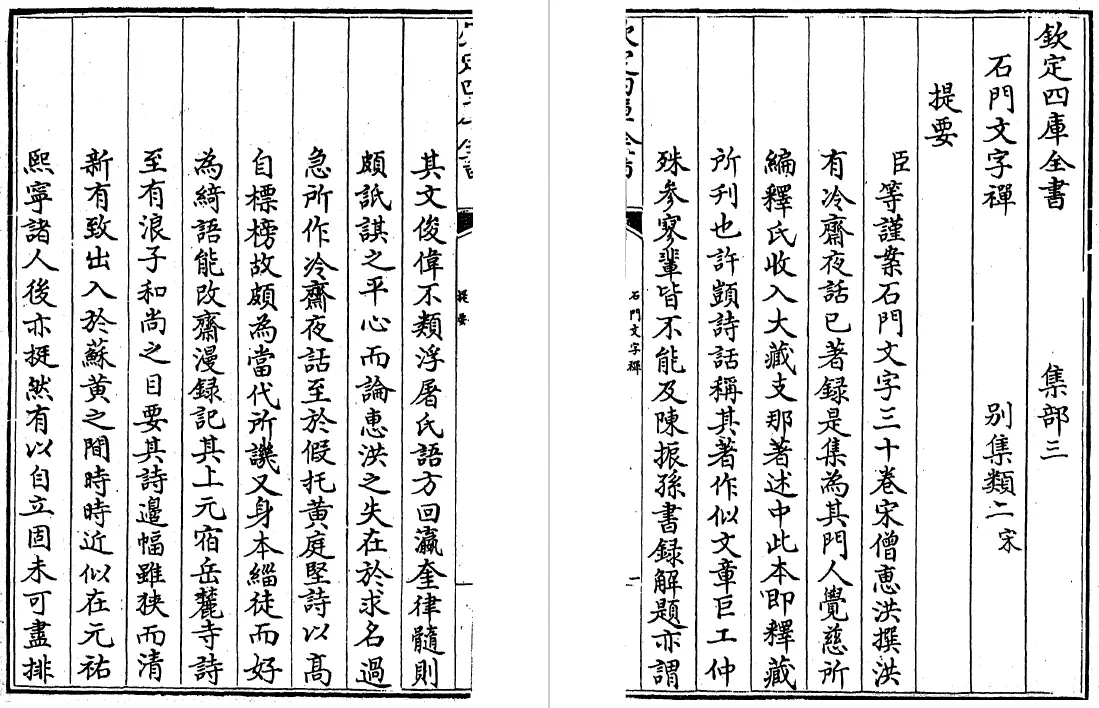 欽定四庫全書 集部三
石門文字禪 别集類二宋
提要
臣等謹案石門文字三十卷宋僧惠洪撰洪
有冷齋夜話已著録是集為其門人覺慈所
編釋氏收入大藏支那著述中此本即釋藏
所刊也許顗詩話稱其著作似文章巨工仲
殊参寥輩皆不能及陳振孫書録解題亦謂
欽定四庫全書
石門文字禪
一
欽定四庫全書
提要
其文俊偉不類浮屠氏語方回瀛奎律髓則
頗詆諆之平心而論惠洪之失在於求名過
急所作冷齋夜話至於假托黄庭堅詩以髙
自標榜故頗為當代所譏又身本緇徒而好
為綺語能改齋漫録記其上元宿岳麓寺詩
至有浪子和尚之目要其詩邊幅雖狹而清
新有致出入於蘇黄之間時時近似在元祐
熙寧諸人後亦挺然有以自立固未可盡排